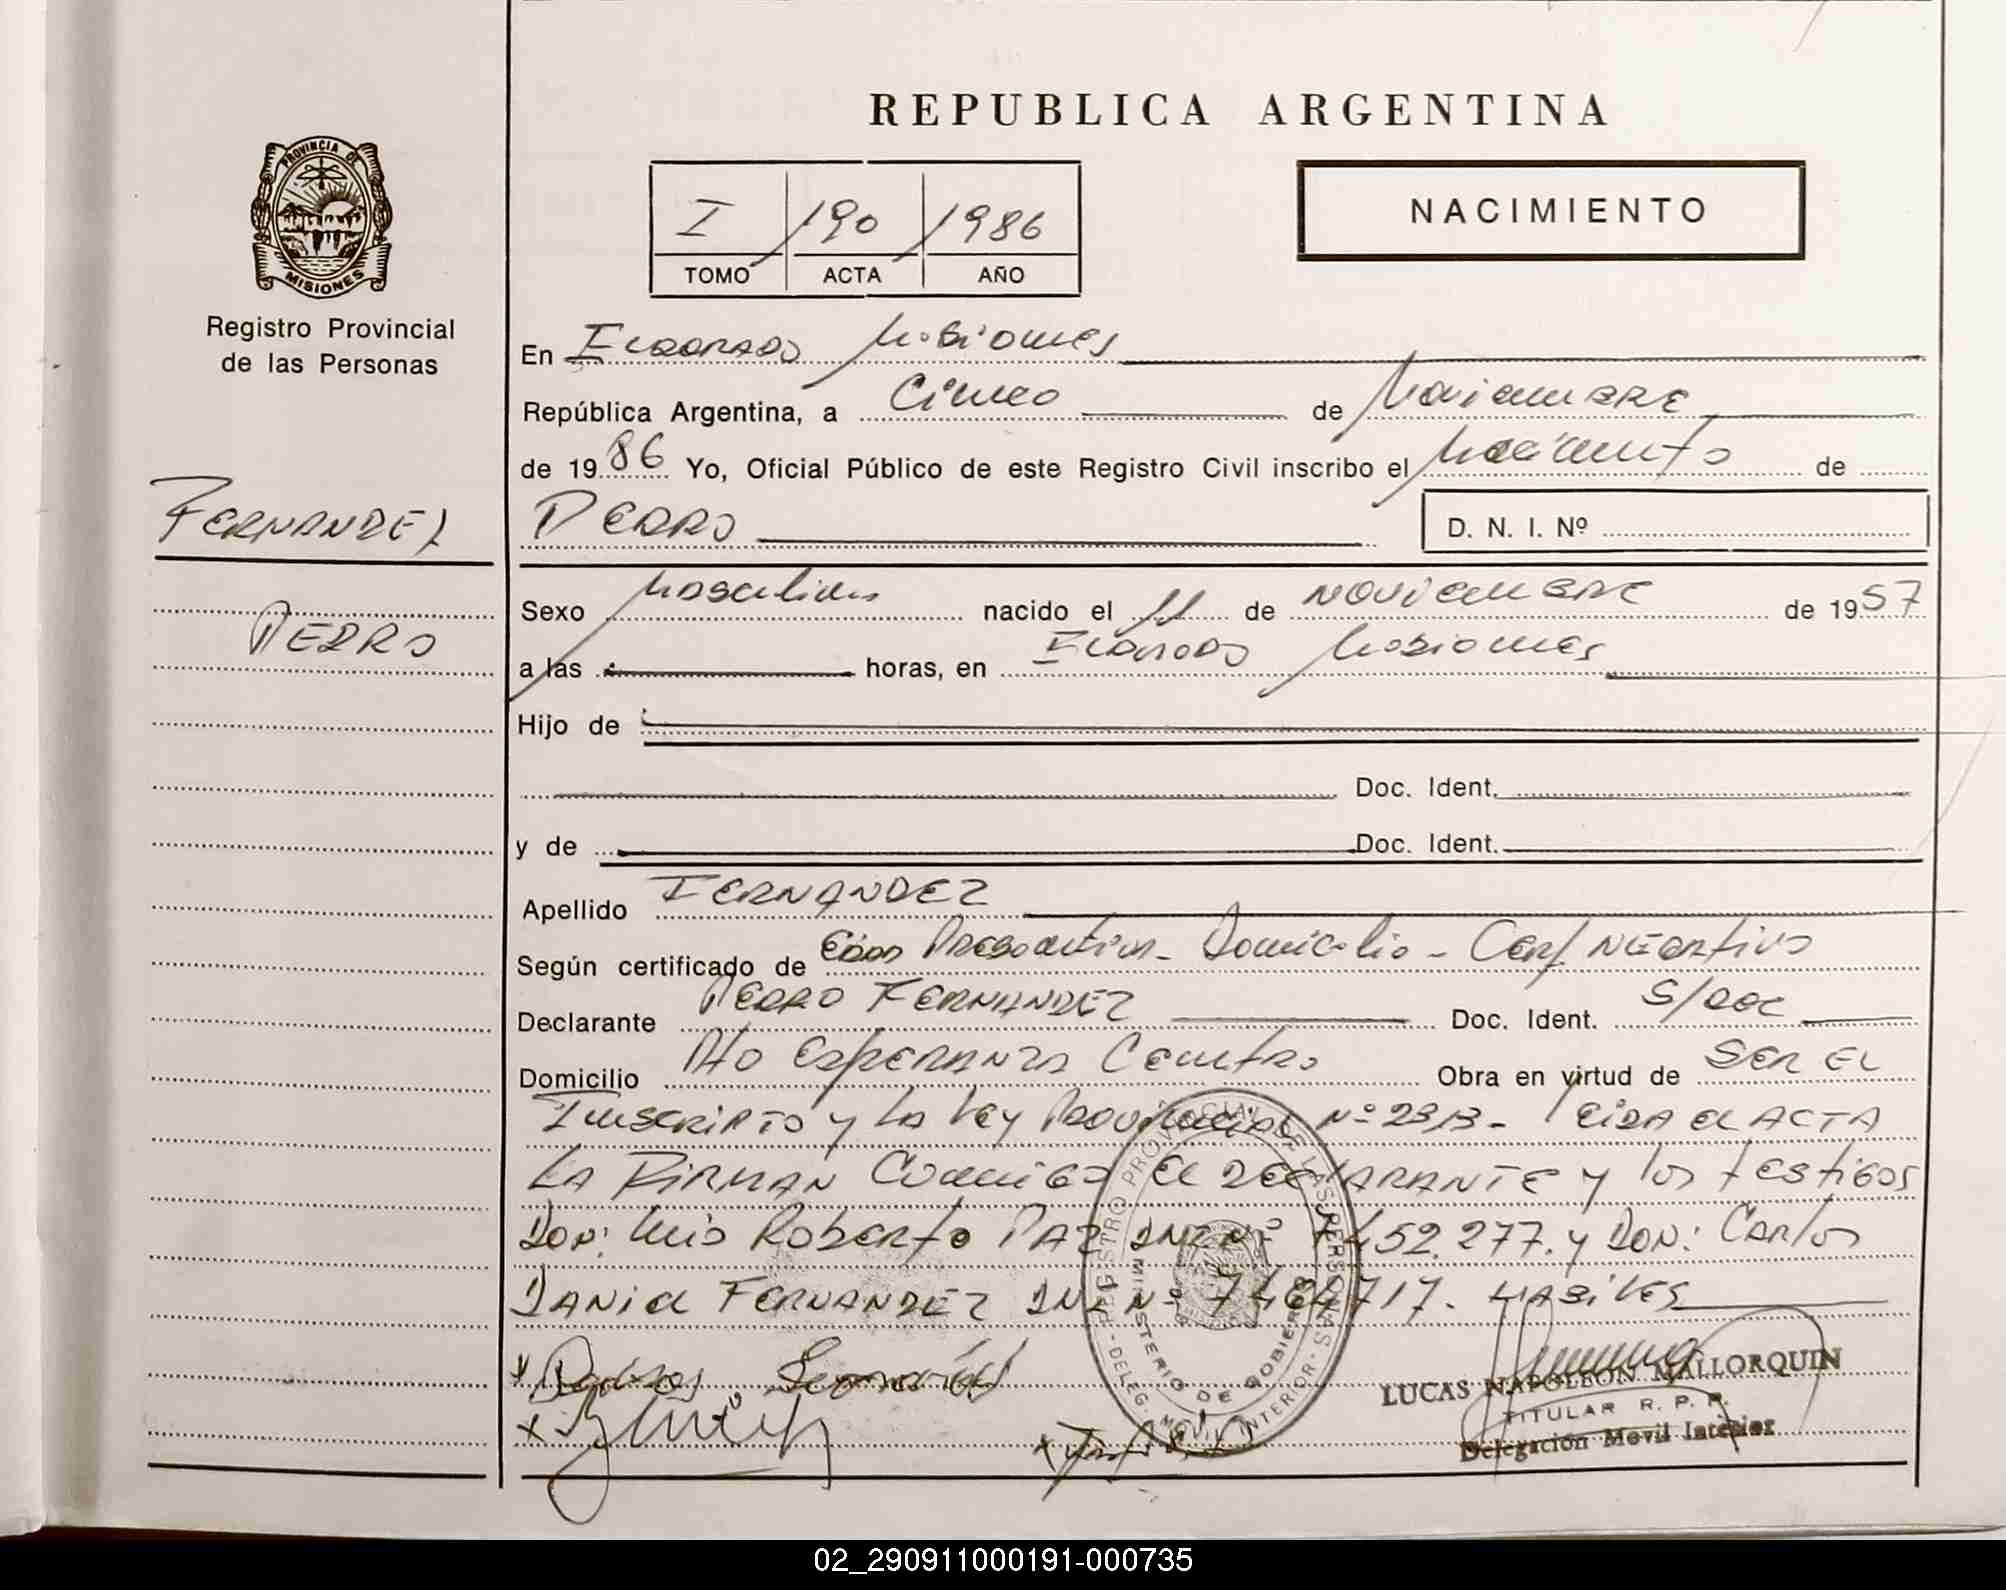 REPUBLICA ARGENTINA
PROVINCIA DE MISIONES
Registro Provincial
de las Personas
I / 190 / 1986
TOMO ACTA AÑO
NACIMIENTO
En ELDORADO Misiones
República Argentina, a Cinco de Noviembre
de 1986 Yo, Oficial Público de este Registro Civil inscribo el Nacimiento de
FERNANDEZ
PEDRO
D. N. I. Nº
PEDRO
Sexo Masculino nacido el 11 de NOVIEMBRE de 1957
a las horas, en ELDORADO Misiones
Hijo de
Doc. Ident.
y de Doc. Ident.
Apellido FERNANDEZ
Según certificado de EDAD Presuntiva - Domicilio - Cert NEGATIVO
Declarante PEDRO FERNANDEZ Doc. Ident. S/DOC
Domicilio Pto ESPERANZA Centro Obra en virtud de SER EL
INSCRIPTO y LA LEY PROVINCIAL Nº 2313 - LEIDA EL ACTA
LA FIRMAN Conmigo EL DECLARANTE y los testigos
DON: Luis Roberto PAZ DNI Nº 7.452.277. y DON: Carlos
DANIEL FERNANDEZ DNI Nº 7.484717. HABILES
REGISTRO PROVINCIAL DE LAS PERSONAS
MINISTERIO DE GOBIERNO
DELEG. MOVIL INTERIOR
LUCAS NAPOLEON MALLORQUIN
TITULAR R. P. P.
Delegación Movil Interior
02_290911000191-000735